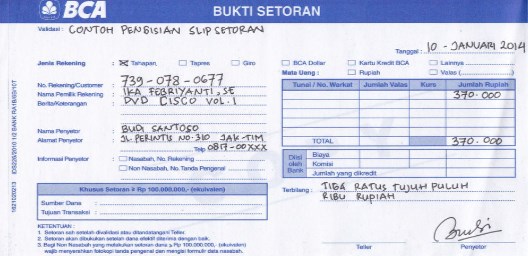 BCA BUKTI SETORAN
Validasi : CONTOH PENGISIAN SLIP SETORAN
Tanggal : 10 - JANUARI 2014
Jenis Rekening : Tahapan Tapres Giro
BCA Dollar Kartu Kredit BCA Lainnya
Mata Uang : Rupiah Valas (
No. Rekening/Customer : 739 - 078 - 0677
Nama Pemilik Rekening : IKA FEBRIYANTI, SE
Berita/Keterangan : DVD CISCO VOL. 1
Tunai / No. Warkat Jumlah Valas Kurs Jumlah Rupiah
370.000
Nama Penyetor : BUDI SANTOSO
Alamat Penyetor : JL. PERINTIS NO. 310 JAK-TIM
Telp 0817-00XXX
TOTAL 370.000
Informasi Penyetor : Nasabah, No. Rekening
Non Nasabah, No. Tanda Pengenal
Diisi oleh Bank
Biaya
Komisi
Jumlah yang dikredit
Khusus Setoran ≥ Rp 100.000.000,- (ekuivalen)
Sumber Dana :
Tujuan Transaksi :
Terbilang : TIGA RATUS TUJUH PULUH
RIBU RUPIAH
KETENTUAN :
1. Setoran sah setelah divalidasi atau ditandatangani Teller.
2. Setoran akan dibukukan setelah dana efektif diterima dengan baik.
3. Bagi Non Nasabah yang melakukan setoran dana ≥ Rp 100.000.000,- (ekuivalen)
wajib menyerahkan fotokopi tanda pengenal dan mengisi formulir data nasabah.
Teller Penyetor